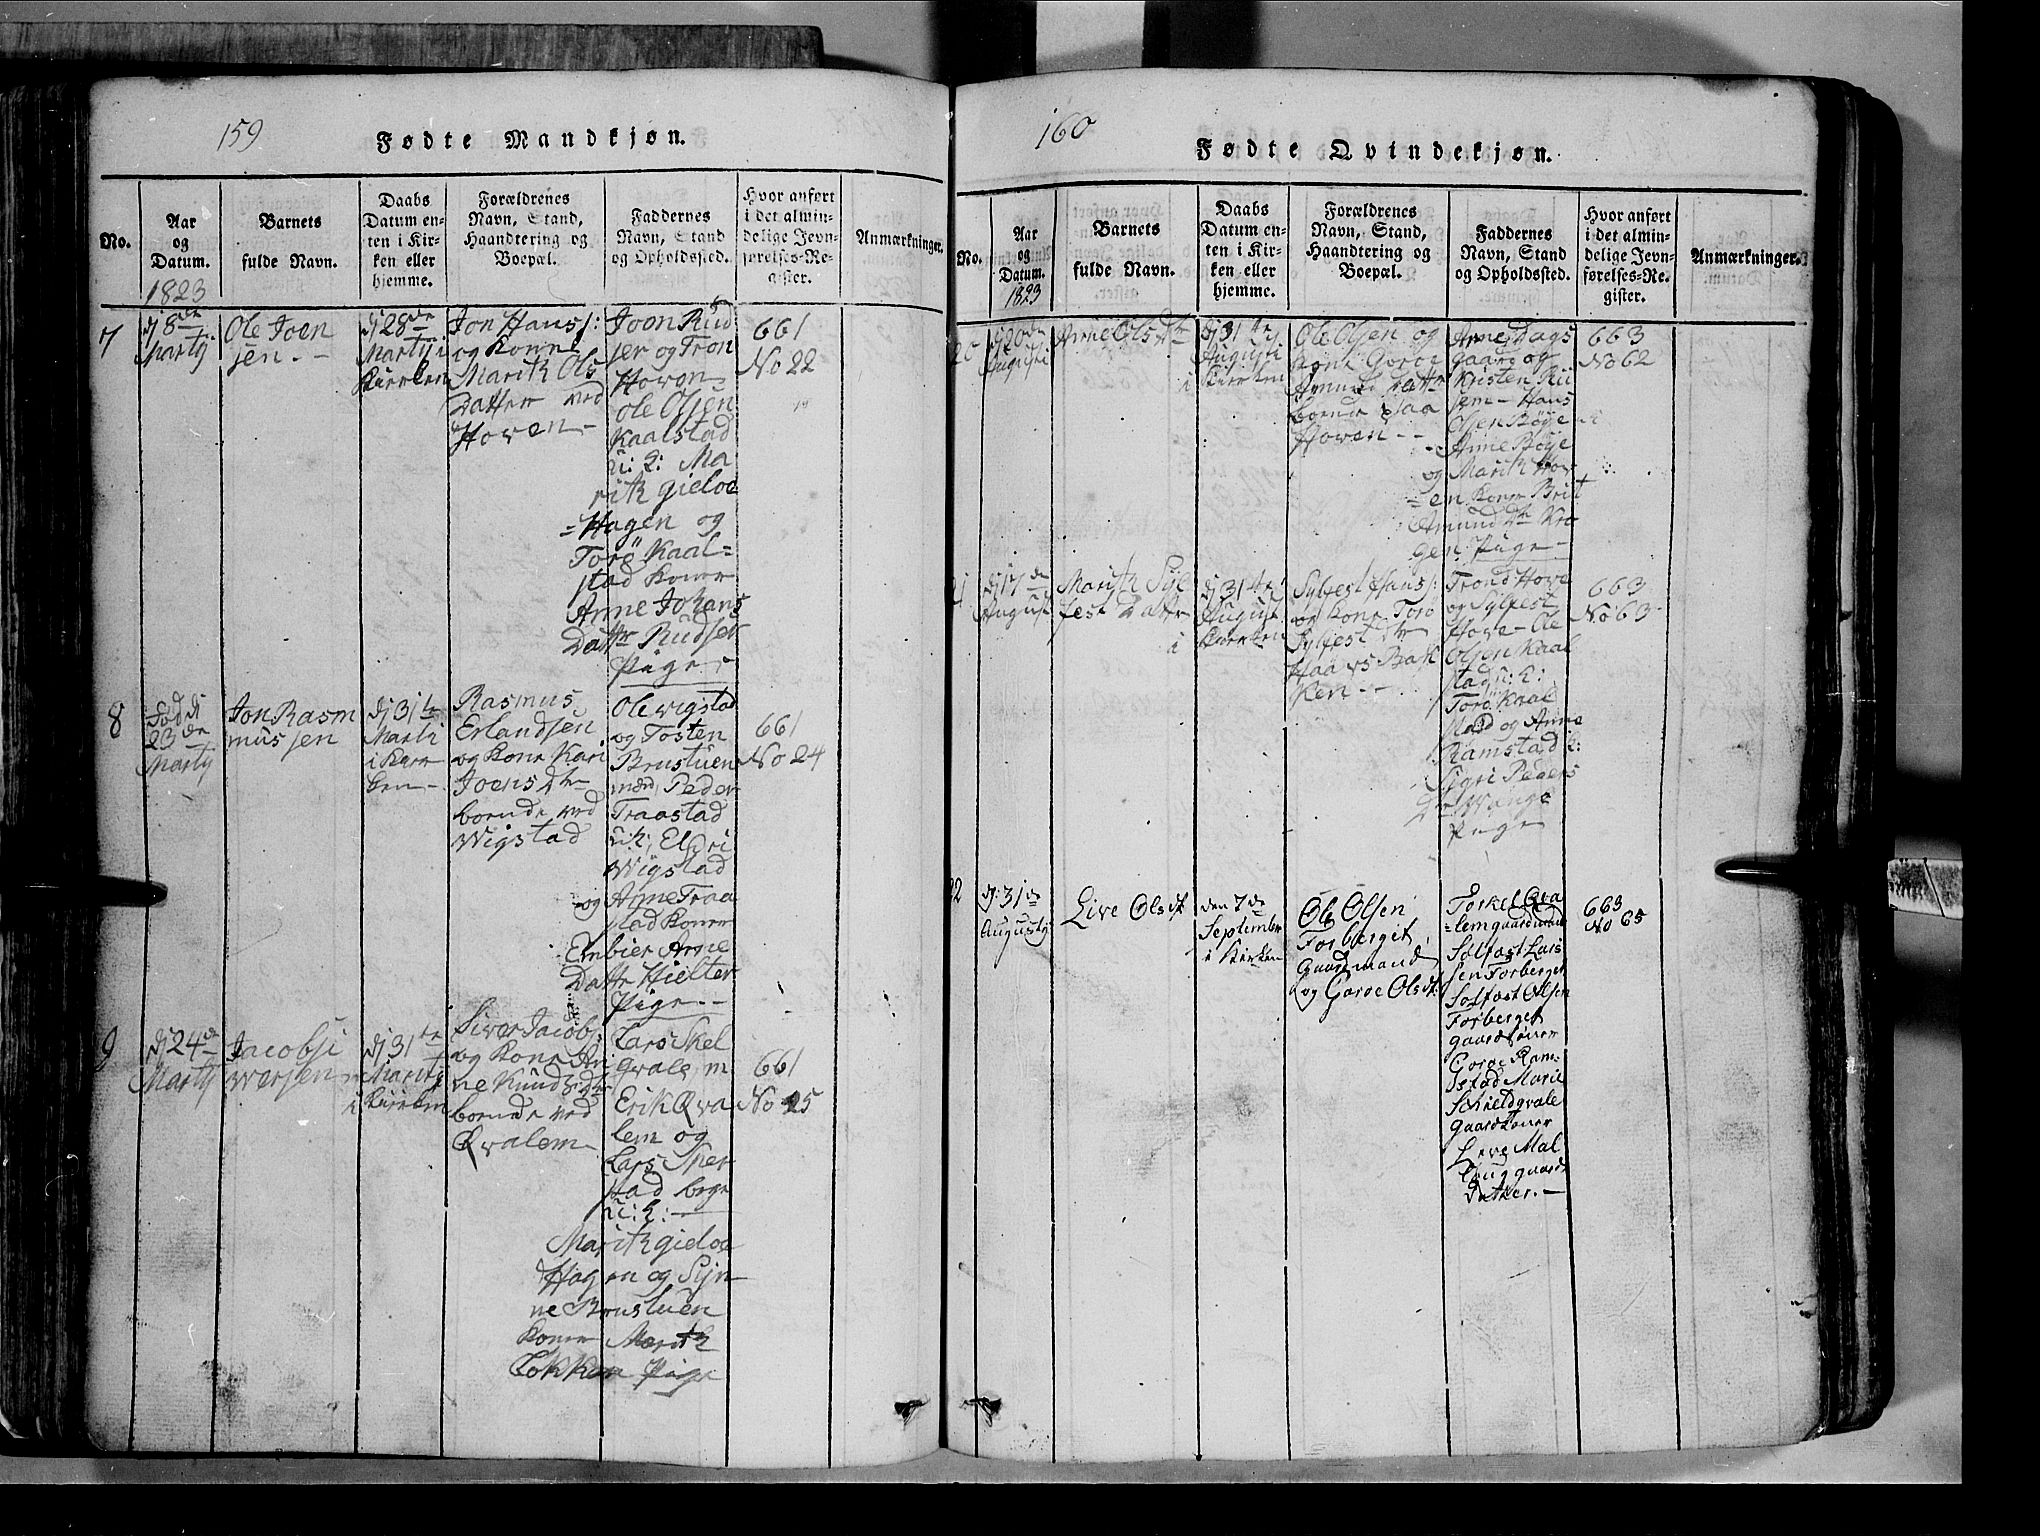 159
Fødte Mandkjøn.
No.
Aar
og
Datum.
1823
Barnets
fulde Navn.
Daabs
Datum en-
ten i Kir-
ken eller
hjemme.
Forældrenes
Navn, Stand,
Haandtering og
Boepæl.
Faddernes
Navn, Stand
og Opholdssted.
Hvor anført
i det almin-
delige Jevn-
førelses-Re-
gister.
Anmærkninger.
7
dj 8de
Martij
Ole Joen
sen.-
dj 28de
Martij i
Kirrken
Jon Hans:
og Kone
Marith Ols
Datter ved
Hoven-
Joon Rud
ser og Tron
Hoven
Ole Olsen
Kaalstad
u: k: Ma
rith gieloe
=Hagen og
Torö Kaal=
stad Koner
Anne Johans
Datter Rudser
Pige-
661
No 22
8
Född dj
23de
Martij
Jon Rasm
mussen
dj 31te
Marti
i Kirr
ken-
Rasmus
Erlandsen
og Kone Kari
Joens Dtr
boende ved
Wigstad
Ole Wigstad
og Tosten
Brustuen
mænd, Peder
Traastad
u: k: Eldri
Wigstad
og Anne Traa
stad Koner
Embier Arne
Datter Hielter
Pige--
661
No 24
9
dj 24de
Martij
Jacob Si
wersen
dj 31te
Martij
i Kirrken
Siver Jacob:
og Kone An
ne Knuds Dtr
boende ved
Qvalem-
Lars Skel
qvale, m
Erik Qva
lem og
Lars Sker
stad bege
u: k:-
Marith gieloe
Hagen og Syn-
ne Brustuen
Koner Marith
Lokken Pige
661
No 25
160
Fødte Qvindekjøn.
No.
Aar
og
Datum.
1823
Barnets
fulde Navn.
Daabs
Datum en-
ten i Kir-
ken eller
hjemme.
Forældrenes
Navn, Stand,
Haandtering og
Boepæl.
Faddernes
Navn, Stand
og Opholdssted.
Hvor anført
i det almin-
delige Jevn-
førelses-Re-
gister.
Anmærkninger.
20
dj 20de
Augusti
Anne Ols Dtr
dj 31te
Augusti
i Kirrken
Ole Olsen og
Kone Goroe
Amund Dattr
boende paa
Hoven--
Arne Dags
gaard og
Kristen Rii
sem- Hans
Olsen Böye
Anne Böye
og Marith Hov
=en Koner Brit
Amund Dtr Kro
gen Pige-
663
No 62
21
dj 17de
August
Marith Syl
fest Datter
dj 31te
August
i Kirrken
Sylfest Hans:
og Kone Torö
Sylfest Dtr
Haavs Bak
ken--
Trond Hove
og Sylfest
Hove- Ole
Olsen Kaal
stad u: k:
Torö Kaal
stad og Anne
Ramstad k:
Sigri Peders
Dtr Wange
Pige
663
No 63
22
dj: 31de
Augustj
Live Olsdt
den 7de
September
i Kirken
Ole Olsen
Forberget,
Gaardmand
og Goroe Olsdt:
Torkel Qva
=lem gaardmænd
Solfast Lars
sen Forberget
Solfast Olsen
Forberget
gaardkoner
Goroe Ram-
stad Marie
Schieldqvale
gaardkoner
Live Mal
thug gaard
Datter.-
663
No 65